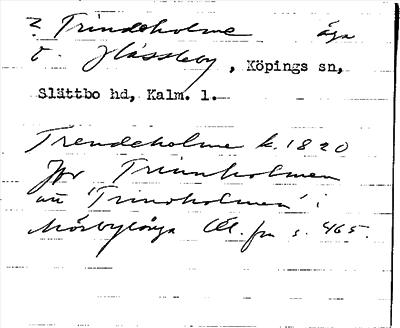 ? Trindeholme äga
t. Hässleby, Köpings sn,
Slättbo hd, Kalm. l.
Trendeholme k. 1820
Jfr Trinnholmen
au 'Trindholmen' i
Mörbylånga Öl. fn s. 465.